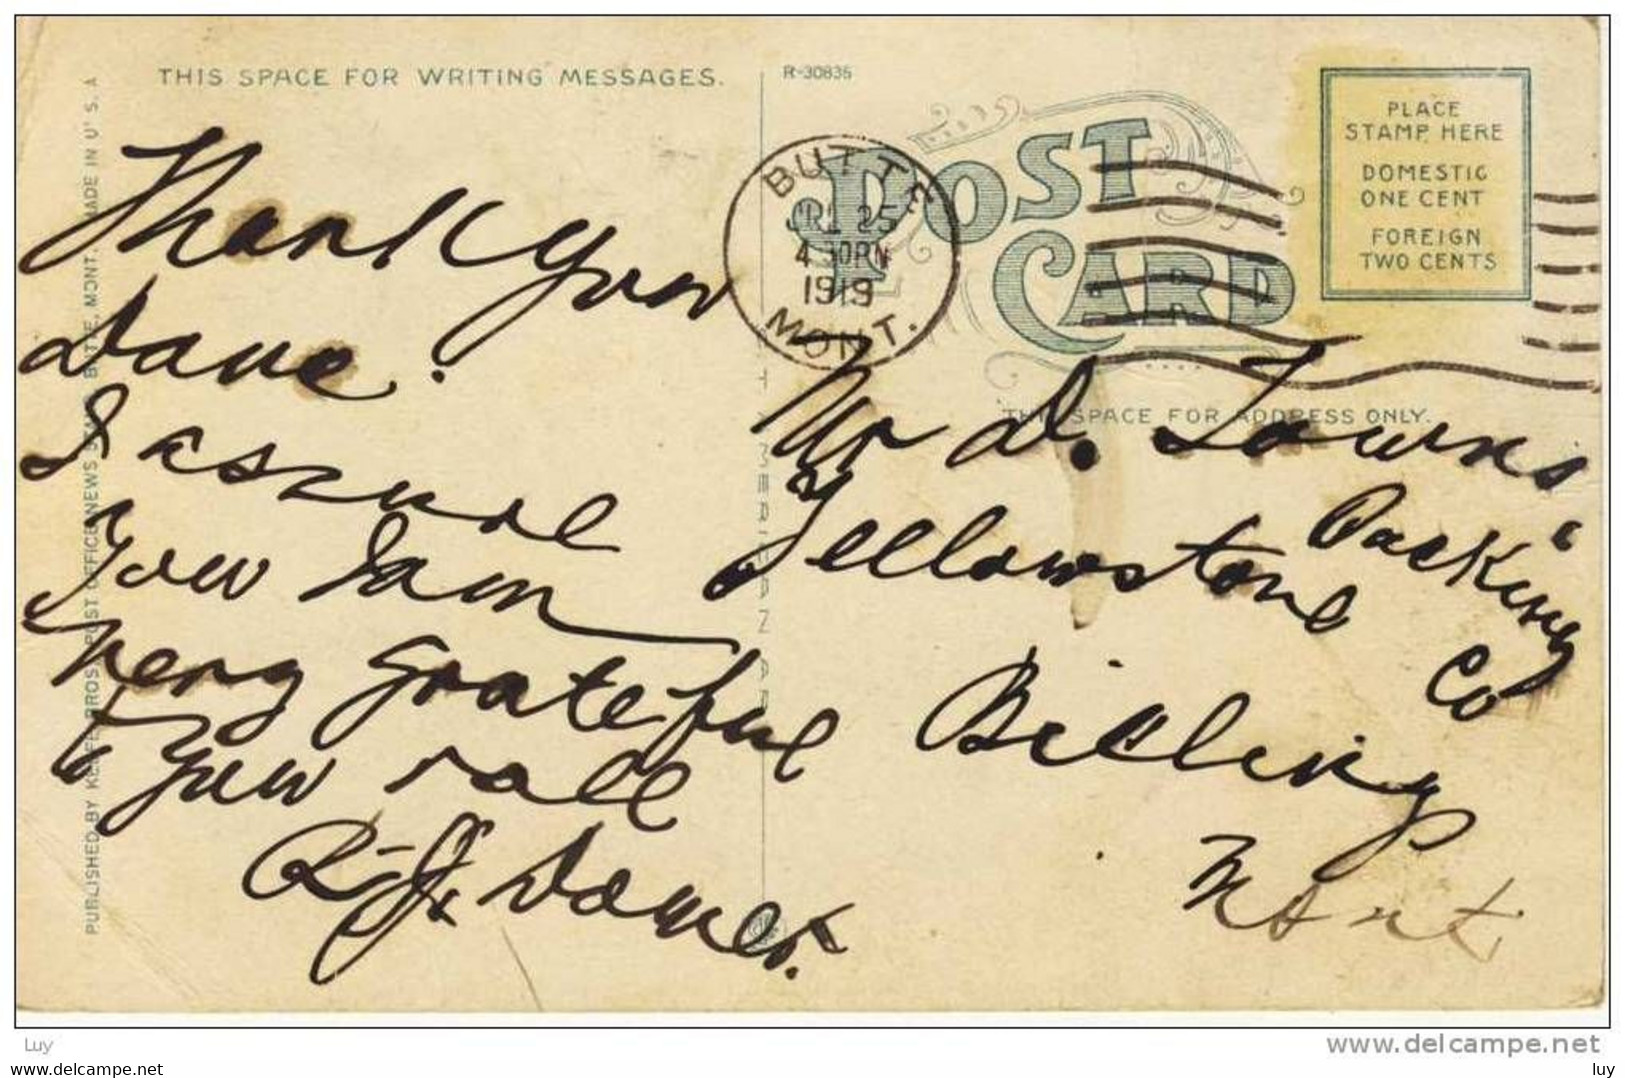 THIS SPACE FOR WRITING MESSAGES.
R-30835
POST CARD
PLACE
STAMP HERE
DOMESTIC
ONE CENT
FOREIGN
TWO CENTS
BUTTE
JUL 25
4 30 PM
1919
MONT.
THIS SPACE FOR ADDRESS ONLY.
PUBLISHED BY KEEFE BROS. POST OFFICE NEWS STAND, BUTTE, MONT. MADE IN U. S. A
Thank you
Dave.
I assure
you I am
very grateful
to you all
Mr D. Towns
Yellowstone Packing
Co
Billings
Mont
Luy
www.delcampe.net
Luy
luy